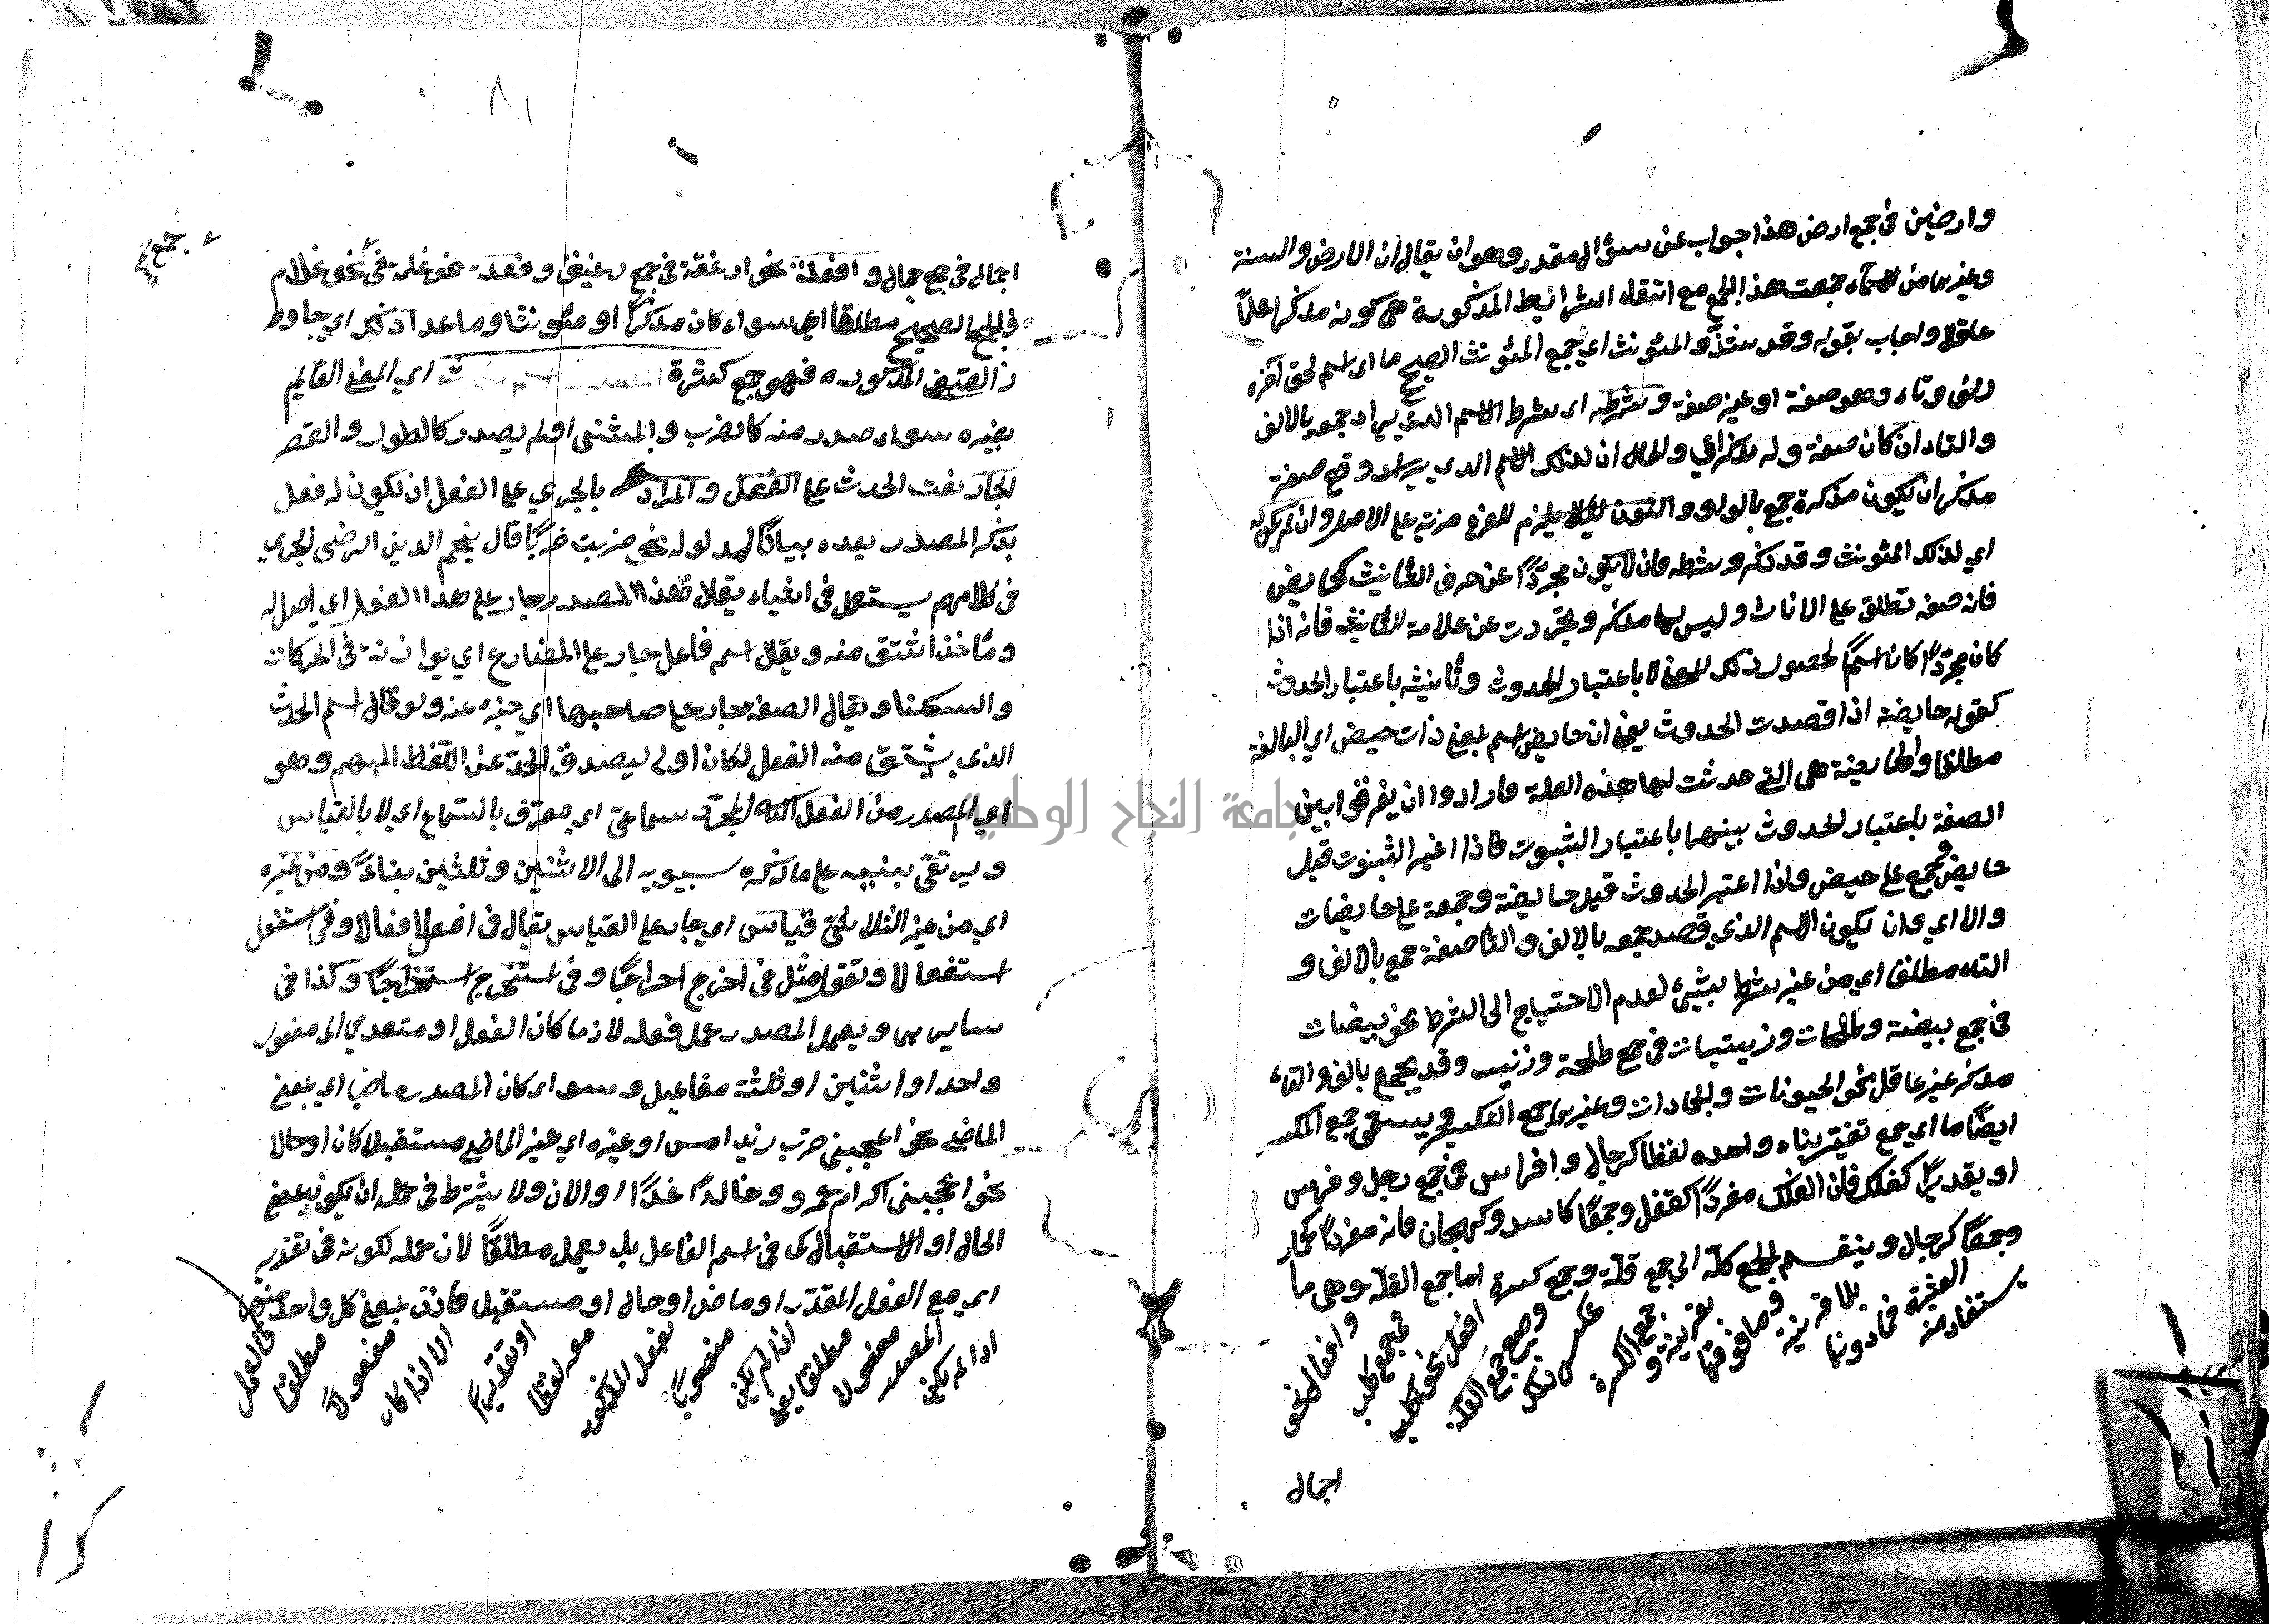 وارضين في جمع ارض هذا جواب عن سؤال مقدر وهو ان يقال ان الارض والسنة
وغيرهما من الاسماء جمعت هذا الجمع مع انتفاء الشرائط المذكورة هي كونه مذكرا علمًا
عاقلا واجاب بقوله وقد شذّ والمئونث اي جمع المئونث الصحيح ما اي اسم لحق آخره
الف وتاء وهو صفة او غير صفة وشرطه اي شرط الاسم الذي يراد جمعه بالالف
والتاء ان كان صفة وله مذكر اي والحال ان لذلك الاسم الذي يراد وقع صفة
مذكر ان يكون مذكره جمع بالواو والنون لئلا يلزم للفرع مزية على الاصل وان لم يكن له
اي لذلك المئونث وقد ذكر وشرطه فان لا يكون مجردًا عن حرف التانيث كحايض
فانه صفة تطلق على الاناث وليس لها مذكر وتجردت عن علامة التانيث فانه اذا
كان مجردًا كان اسمًا لحصول ذلك المعنى لا باعتبار الحدوث وتانيثه باعتبار الحدوث
كقوله حايضة اذا قصدت الحدوث يعني ان حايض اسم بمعنى ذات حيض اي البالغة
مطلقا والحايضة هي التي حدثت لها هذه العلة فارادوا ان يفرقوا بين
الصفة باعتبار الحدوث بينهما باعتبار الثبوت فاذا اعتبر الثبوت قيل
حايض وجمع على حيض واذا اعتبر الحدوث قيل حايضة وجمعه على حايضات
والا اي وان يكون الاسم الذي قصد جمعه بالالف والتا صفة جمع بالالف و
التاء مطلقا اي من غير شرط بشيئ لعدم الاحتياج الى الشرط نحو بيضات
في جمع بيضة وطلحات وزينبات في جمع طلحة وزينب وقد يجمع بالف والتاء
مذكر غير عاقل نحو الحيوانات والجمادات وغيرهما جمع التكسير ويسمى جمع المكسر
ايضًا ما اي جمع تغيّر بناء واحده لفظا كرجال وافراس في جمع رجل وفرس
او تقديرًا كفلك فان الفلك مفردًا كقفل وجمعًا كاسد وكهجان فانه مفردًا كحمار
وجمعًا كرجال وينقسم الجمع كله الى جمع قلّة وجمع كثرة اما جمع القلّة وهي ما
يستفاد منه
العشرة فمادونها
بلا قرينة
وما فوقها
بقرينة و
جمع الكثرة
عكس ذلك
وصيغ جمع القلة
افعل نحو اكلب
في جمع كلب
وافعال نحو
اجمال
٨١
جمع
اجمال في جمع جمال وافعلة نحو ارغفة في جمع رغيف وفعلة نحو غلمة في نحو غلام
والجمع الصحيح مطلقا اي سواء كان مذكرًا او مئونثا وما عدا ذلك اي جاوز
المذكوره فهو جمع كثرة اي المعنى القايم
بغيره سواء صدر منه كالضرب والمشي او لم يصدر كالطول والقصر
الجار نعت الحدث على الفعل والمراد بالجري على الفعل ان يكون له فعل
يذكر المصدر بعده بيانًا لمدلوله نحو ضربت ضربًا قال نجم الدين الرضى الجري
في كلامهم يستعمل في اشياء يقال هذا المصدر جار على هذا الفعل اي اصل له
وماخذ اشتق منه ويقال اسم فاعل جار على المضارع اي يوازنه في الحركات
والسكنا ويقال الصفة جار على صاحبها اي خبره عنه ولو قال اسم الحدث
الذي يشتق منه الفعل لكان اولى ليصدق الحدّ عن اللفظ المبهم وهو
اي المصدر من الفعل الثلاثي المجرّد سماعيّ اي يعرف بالسماع اي لا بالقياس
ويرتقي بنيه على ما ذكره سيبويه الى الاثنين وثلثين بناءً ومن غيره
اي من غير الثلاثيّ قياس اي جار على القياس يقال في افعل افعالا وفي استفعل
استفعالا وتقول مثل في اخرج اخراجًا وفي استخرج استخراجًا وكذا في
ساير ويعمل المصدر عمل فعله لازما كان الفعل او متعدي الى مفعول
واحد او اثنين او ثلثة مفاعيل وسواء كان المصدر ماضي اي بمعنى
الماضي نحو اعجبني ضرب زيد امس او غيره اي غير الماضي مستقبلا كان او حالا
نحو اعجبني اكرام عمرو وخالدًا غدًا او الان ولا يشترط في عمله ان يكون بمعنى
الحال او الاستقبال كما في اسم الفاعل بل يعمل مطلقًا لان عمله لكونه في تقدير
اي مع الفعل المقدّر او ماض او حال او مستقبل فاذن بمعنى كل واحد منهما
في العمل
مطلقا
اذا لم يكن
المصدر
مفعولا
مطلقا يعني
اذا لم يكن
منصوبًا
بفعل المذكور
معه لفظا
او تقديرًا
الا اذا كان
مفعولاً
مطلقا
جامعة النجاح الوطنية